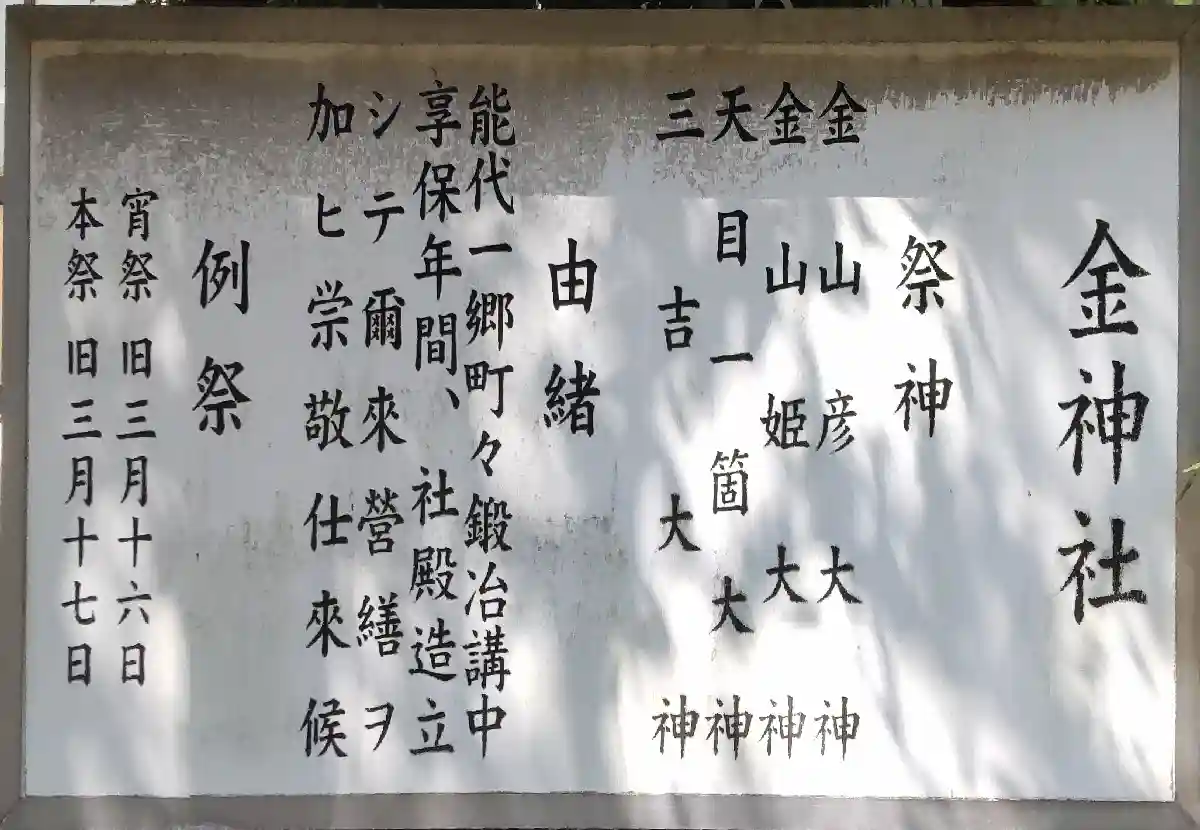 金神社
祭神
金山彦大神
金山姫大神
天目一箇大神
三吉大神
由緒
能代一郷町々鍛冶講中
享保年間、社殿造立
シテ爾來営繕ヲ
加ヒ崇敬仕來候
例祭
宵祭 旧三月十六日
本祭 旧三月十七日